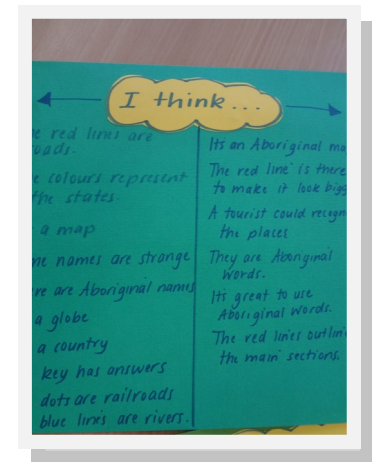 I think...
e red lines are
oads.
e colours represent
the states.
a map
me names are strange
ere are Aboriginal names
a globe
a country
key has answers
dots are railroads
blue lines are rivers.
Its an Aboriginal ma
The red line is there
to make it look bigg
A tourist could recogn
the places
They are Aboriginal
words.
It's great to use
Aboriginal words.
The red lines outlin
the main sections.